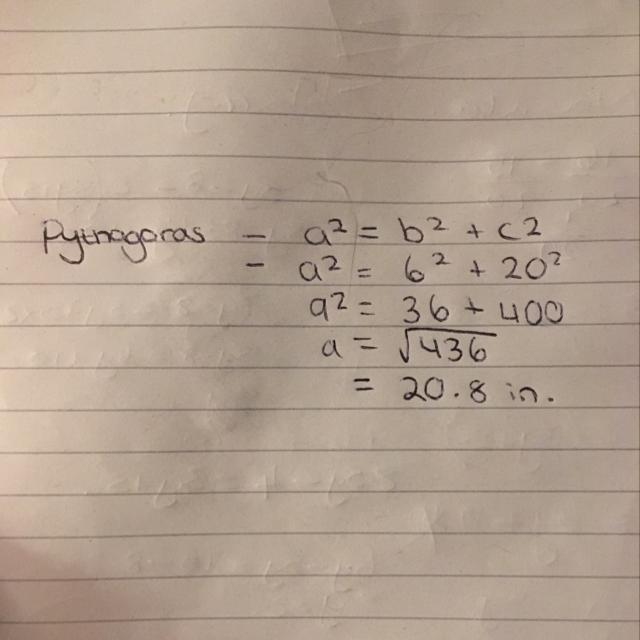 Pythagoras - a² = b² + c2
- a² = 6² + 20²
a² = 36 + 400
a = √436
= 20.8 in.